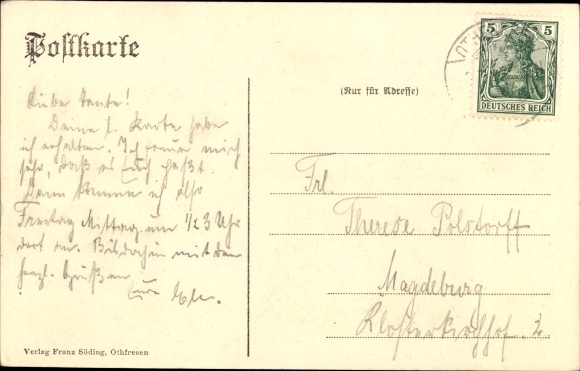 Postkarte
5 5
DEUTSCHES REICH
(Nur für Adresse)
Liebe Tante!
Deine l. Karte habe
ich erhalten. Ich freue mich
sehr, daß es Euch paßt.
Dann komme ich also
Freitag Mittag um 1/2 3 Uhr
dort an. Bis dahin mit den
herzl. Grüßen
Eure
Frl.
Therese Polstorff
Magdeburg
Klosterkirchhof. 2.
Verlag Franz Söding, Othfresen